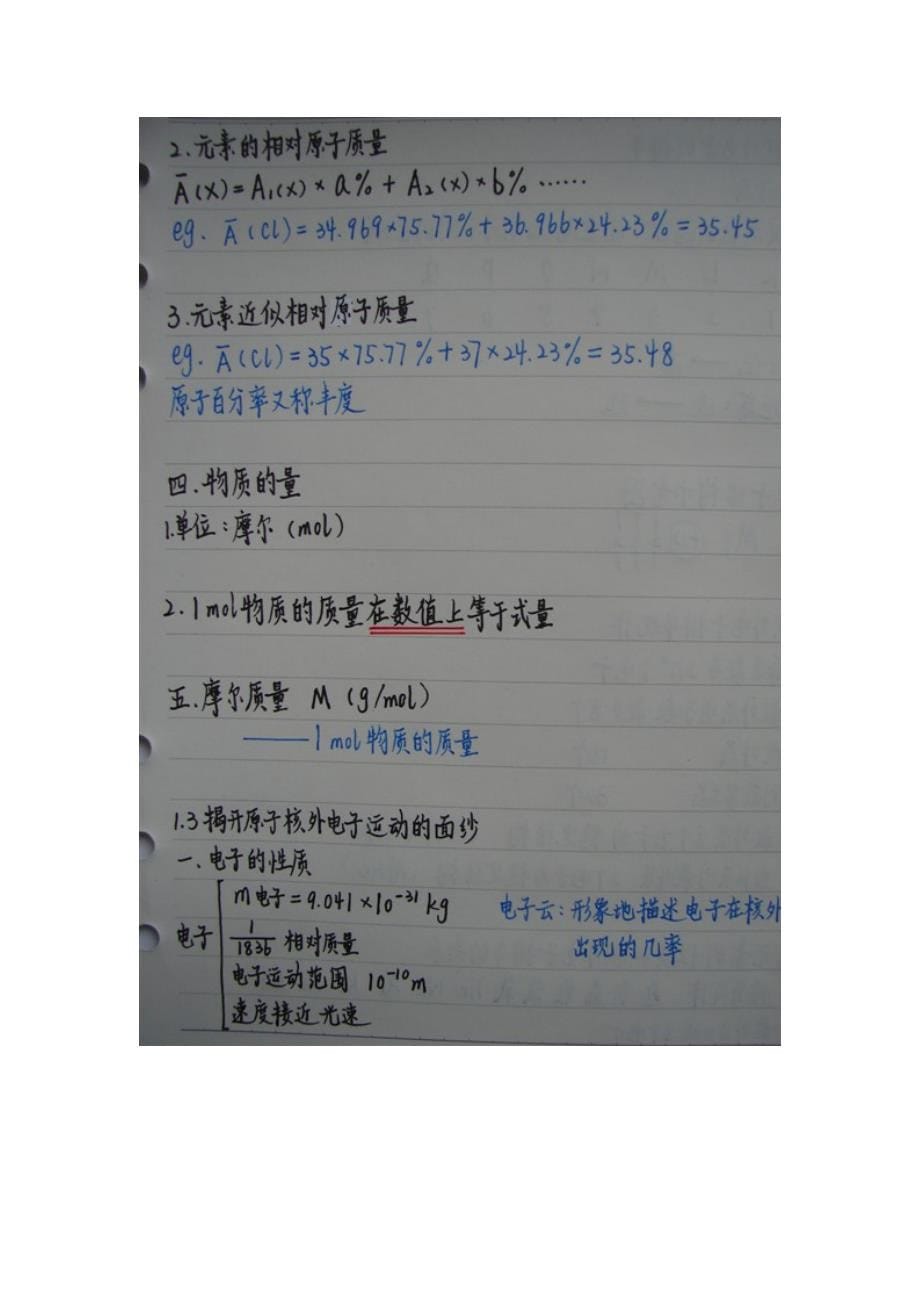 2.元素的相对原子质量
Ā(X)=A₁(X)×a%+A₂(X)×b%……
eg. Ā(Cl)=34.969×75.77%+36.966×24.23%=35.45
3.元素近似相对原子质量
eg. Ā(Cl)=35×75.77%+37×24.23%=35.48
原子百分率又称丰度
四.物质的量
1.单位:摩尔(mol)
2.1mol物质的质量在数值上等于式量
五.摩尔质量 M(g/mol)
——1mol物质的质量
1.3揭开原子核外电子运动的面纱
一.电子的性质
m电子=9.041×10⁻³¹kg
电子云:形象地描述电子在核外
电子
1/1836 相对质量
出现的几率
电子运动范围 10⁻¹⁰m
速度接近光速